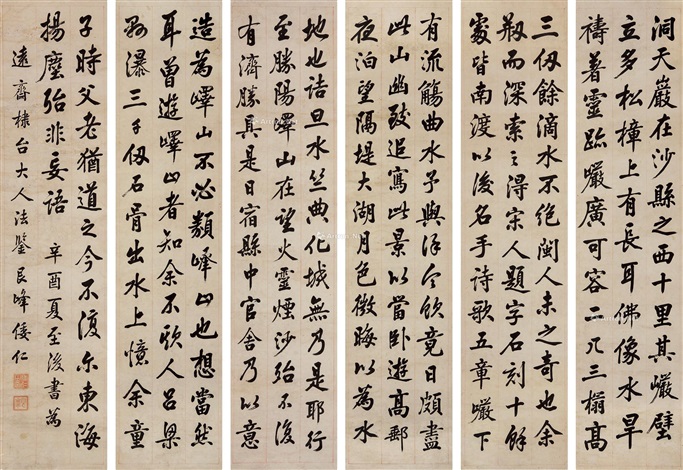 洞天巖在沙縣之西十里其巖壁
立多松樟上有長耳佛像水旱
禱著靈跡巖廣可容二几三榻高
三仞餘滴水不絕閩人未之奇也余
刱而深索之得宗人題字石刻十餘
處皆南渡以後名手詩歌五章巖下
有流觴曲水予與徐令飲竟日頗盡
此山幽致追寫此景以當臥遊高郵
夜泊望隔堤大湖月色微晦以為水
地也詰旦水竺典化城無乃是耶行
至勝陽嶧山在望火靈煙沙殆不復
有濟勝具是日宿縣中官舍乃以意
造為嶧山不必類嶧山也想當然
耳曾遊嶧山者知余不欺人呂梁
瀑三千仞石骨出水上憶余童
子時父老猶道之今不復尔東海
揚塵殆非妄語 辛酉夏至後書為
遠齋棣台大人法鑒艮峰倭仁